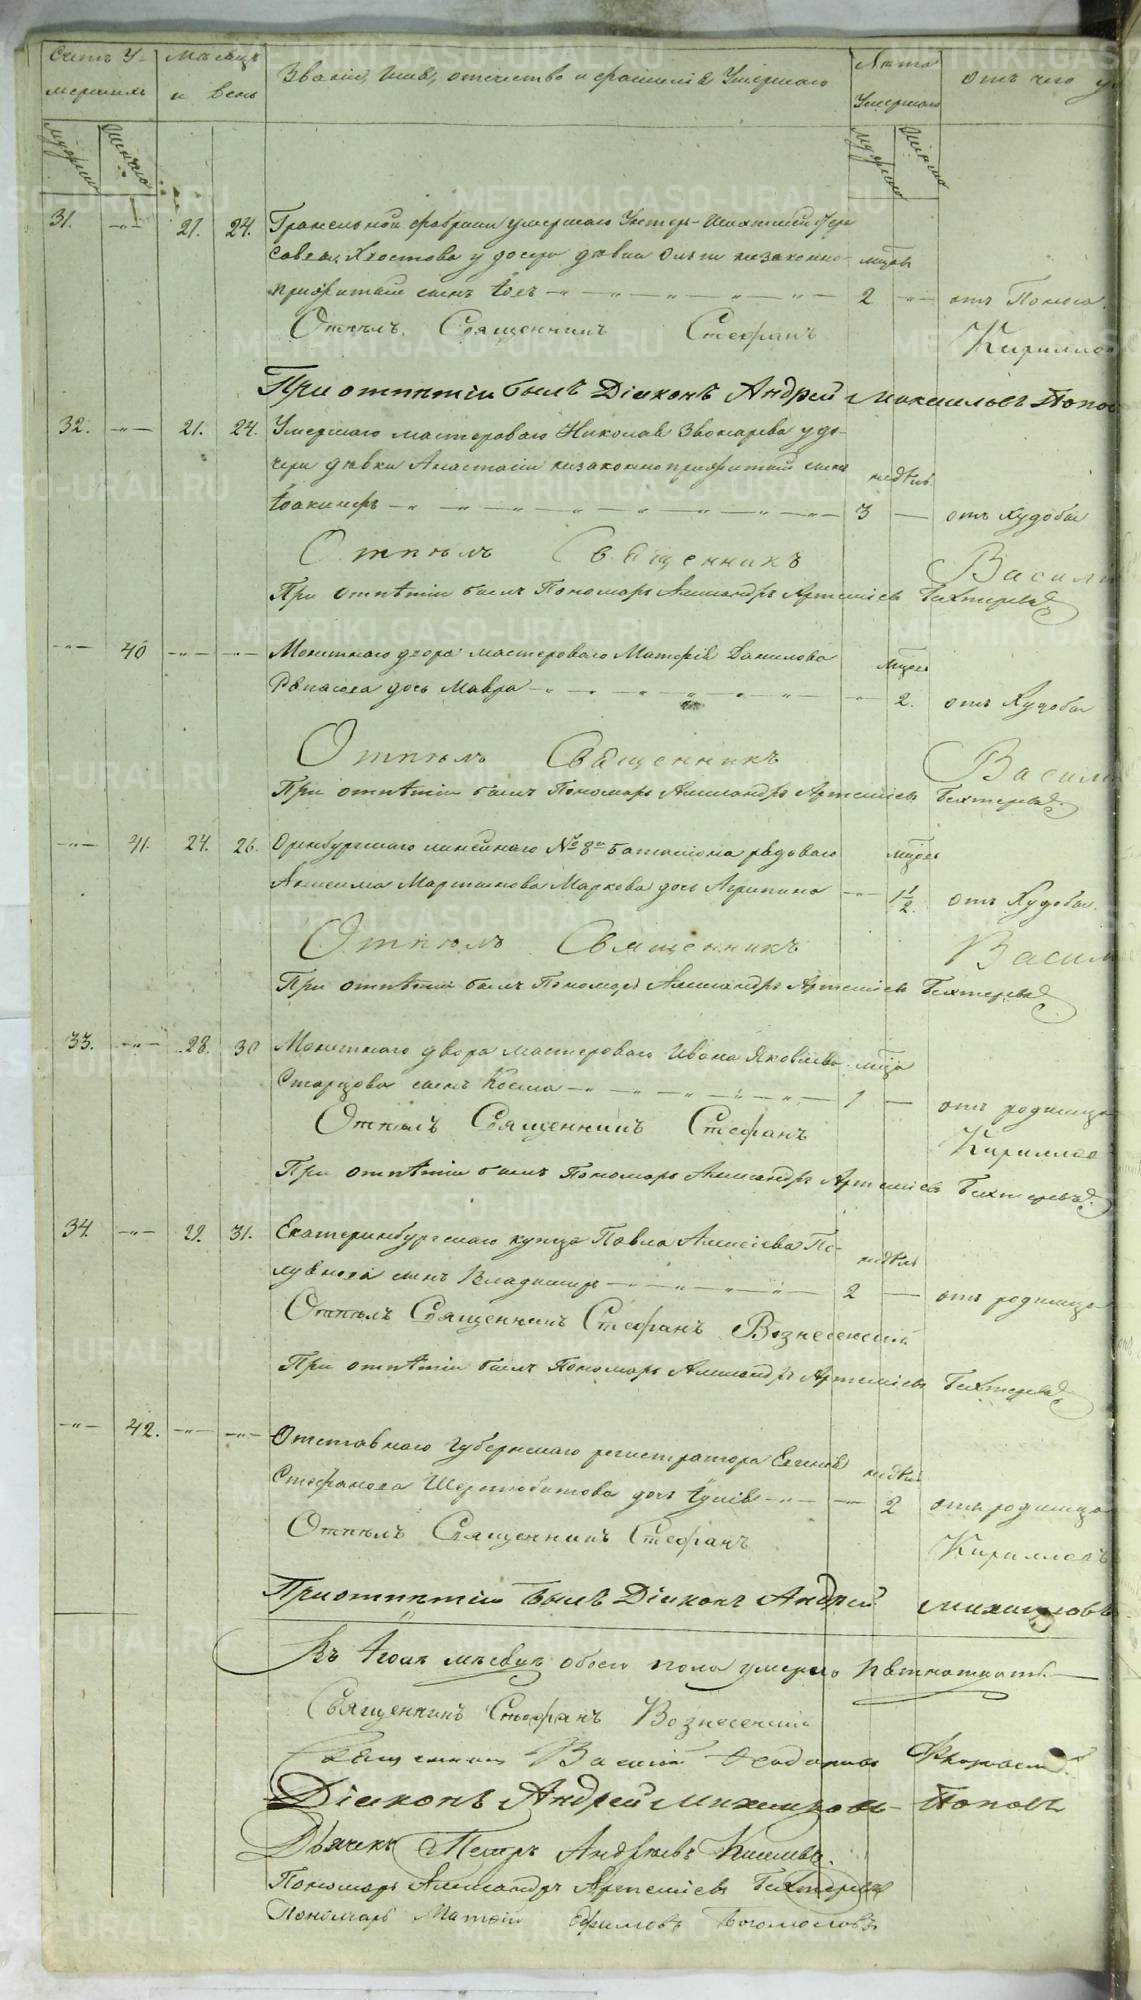 Счетъ У-
мершихъ
Мѣсяцъ
и день
Званіе, имя, отчество и фамилія Умершаго
Лѣта
Умершаго
отъ чего
мужеска
женска
мужеска
женска
31. -„- 21. 24. Гранильной фабрики умершаго Унтеръ-Шихтмейстера
Савел. Хвостова у дочери дѣвки Ольги незаконно- мѣсяц.
прижитый сынъ -„- 2 -„- отъ Поноса.
Отпѣлъ Священникъ Стефанъ Кириллов
При отпѣтіи былъ Діаконъ Андрей Михаиловъ Попов
32. -„- 21. 24. Умершаго мастероваго Николая Звонарева у до-
чери дѣвки Анастасіи незаконноприжитый сынъ недѣль.
Іоакимфъ -„- 3 — отъ Худобы
Отпѣлъ Священникъ Васили
При отпѣтіи былъ Пономарь Александръ Артеміевъ Бехтеревъ
-„- 40 -„- -„- Монетнаго двора мастероваго Матфія Данилова мѣсяц.
дочь Мавра -„- 2. отъ Худобы
Отпѣлъ Священникъ Васили
При отпѣтіи былъ Пономарь Александръ Артеміевъ Бехтеревъ
-„- 41. 24. 26. Оренбургскаго линейнаго № 8го баталіона рядоваго мѣсяц.
Анисима Мартынова Маркова дочь Агрипина — 1½. отъ Худобы.
Отпѣлъ Священникъ Васил
При отпѣтіи былъ Пономарь Александръ Артеміевъ Бехтеревъ
33. -„- 28. 30 Монетнаго двора мастероваго Ивана Яковлева мѣсяца
Старцова сынъ Косма -„- 1 — отъ родимца
Отпѣлъ Священникъ Стефанъ Кириллов
При отпѣтіи былъ Пономарь Александръ Артеміевъ Бехтеревъ
34. -„- 29. 31. Екатеринбургскаго купца Павла Алексіева По- недѣль
луянова сынъ Владимиръ -„- 2 — отъ родимца
Отпѣлъ Священникъ Стефанъ Вознесенскій
При отпѣтіи былъ Пономарь Александръ Артеміевъ Бехтеревъ
-„- 42. -„- -„- Отставнаго губернскаго регистратора Евгенія недѣль
Стефанова дочь Юлія -„- 2 отъ родимца
Отпѣлъ Священникъ Стефанъ Кирилловъ
При отпѣтіи былъ Діаконъ Андрей Михаиловъ
Въ мѣсяцѣ обоего пола умерло
Священникъ Стефанъ Вознесенскій
Священникъ Василій Феодоровъ
Діаконъ Андрей Михаиловъ Поповъ
Дьячекъ Петръ Андреевъ Киселевъ.
Пономарь Александръ Артеміевъ Бехтеревъ
Пономарь Матфій Ефимовъ Богомоловъ
METRIKI.GASO-URAL.RU